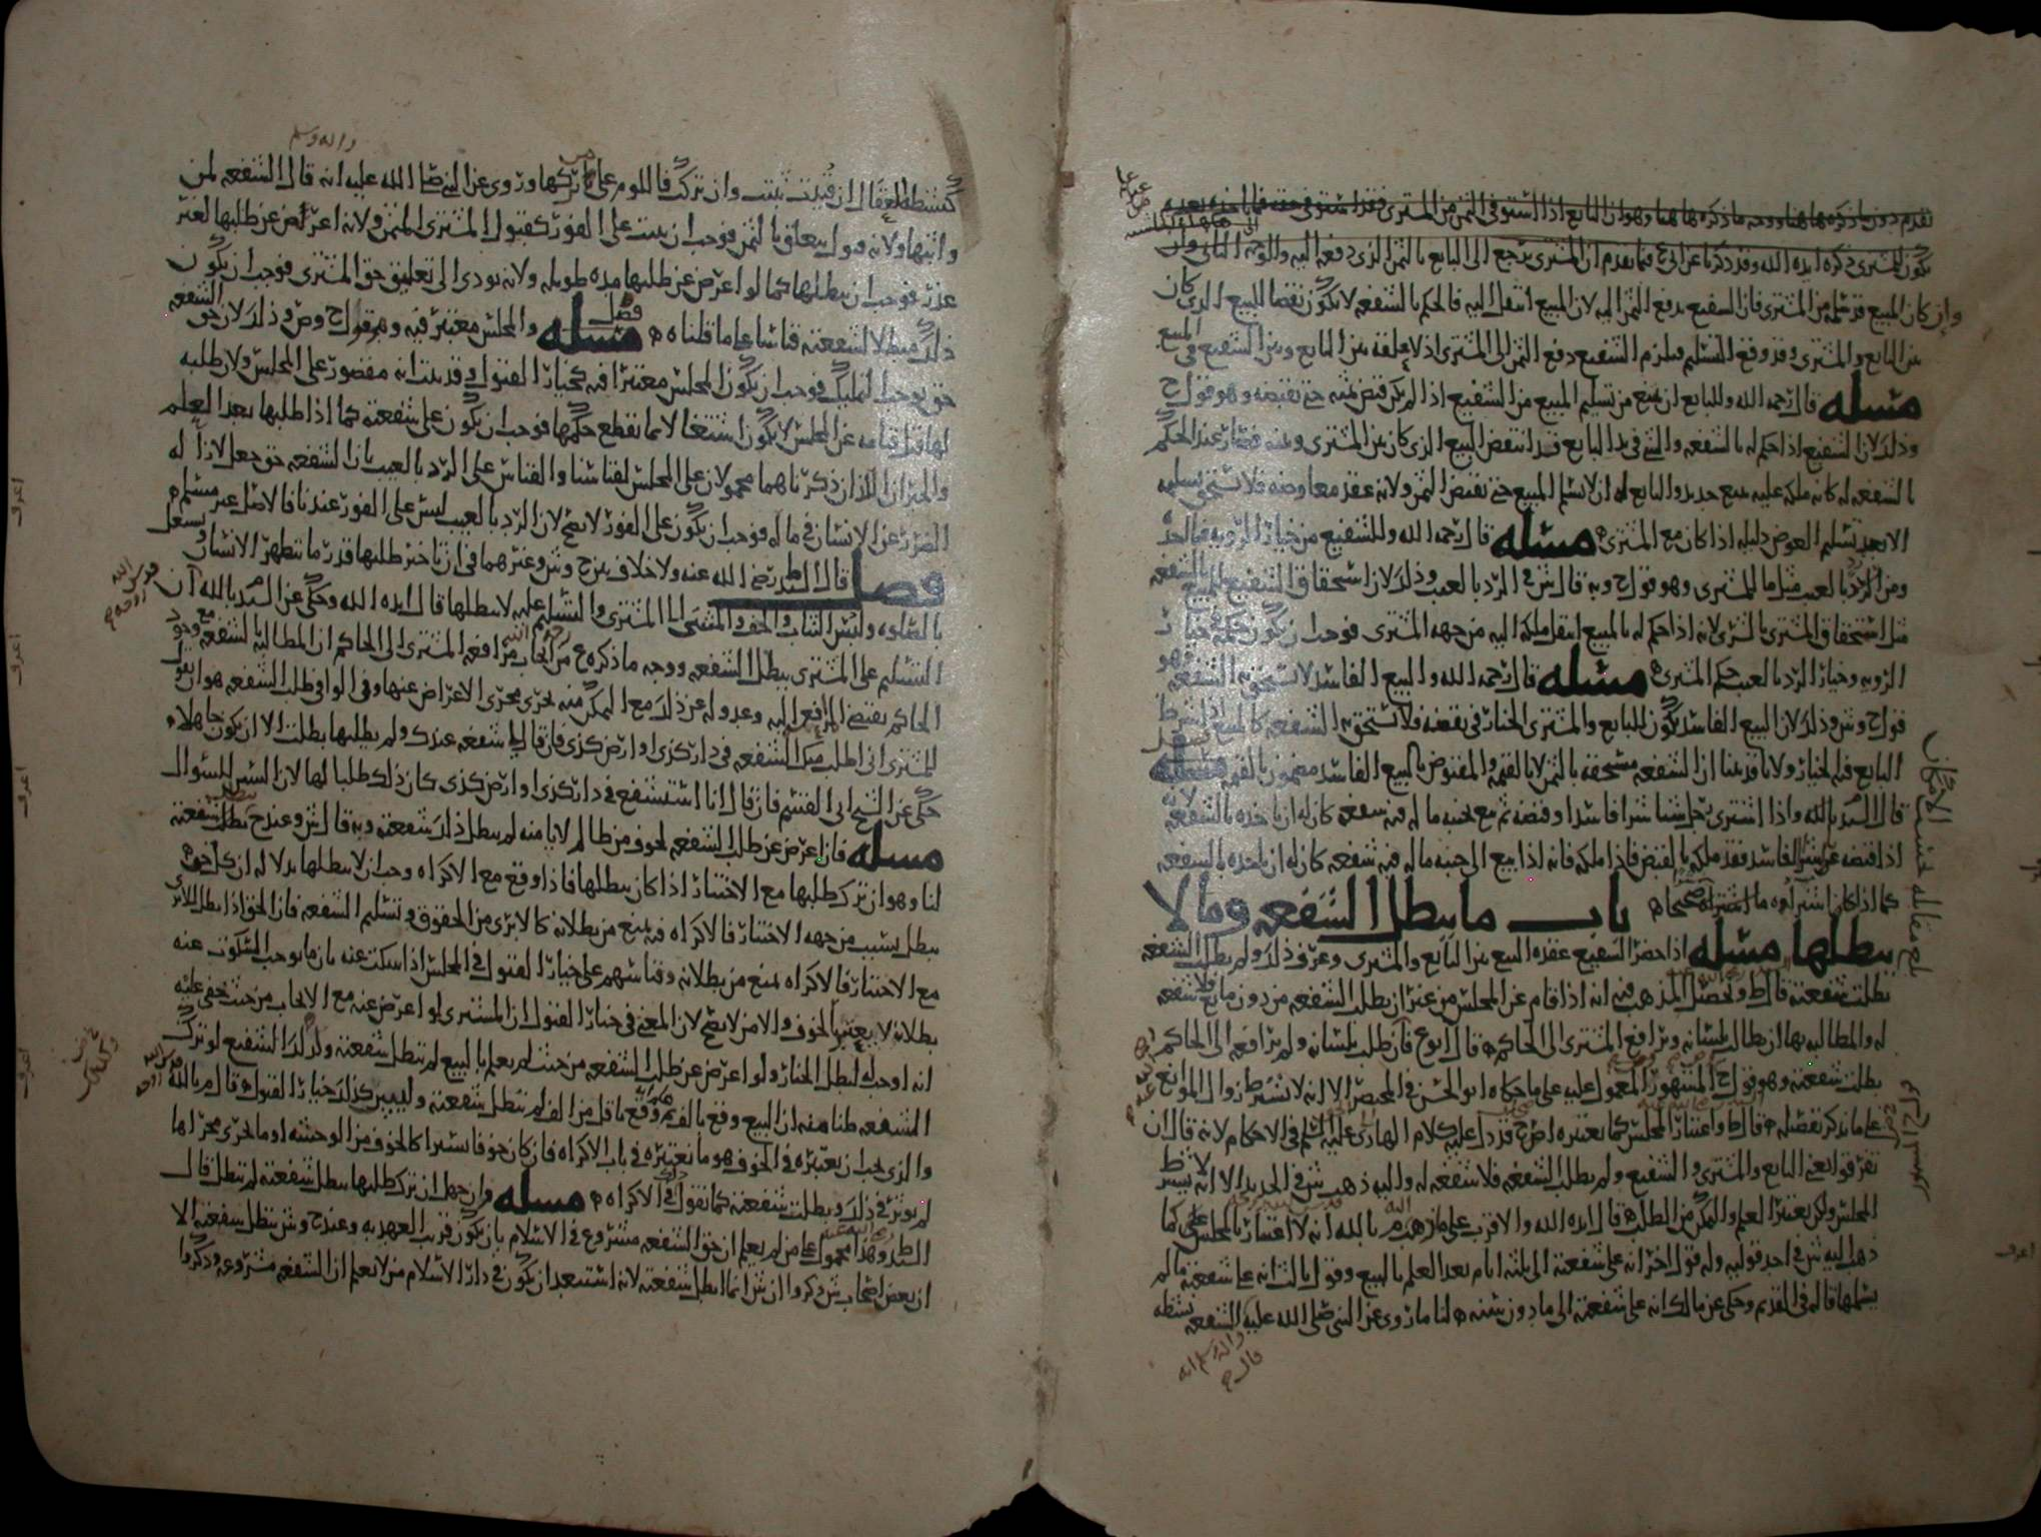 تقدم دون ما ذكره هاهنا ووجه ما ذكره هاهنا وهو ان البايع اذا استوفى الثمن من المشتري فقد استوفى حقه
يكون للمشتري ذكره ايده الله وقد ذكرنا عن ان المشتري يرجع الى البايع بالثمن الذي دفعه اليه والوجه الثاني وان
وان كان المبيع قد سلم من المشتري فان الشفيع يدفع الثمن اليه لان المبيع انتقل اليه فالحكم بالشفعه لا يكون نقضا للبيع الذي كان
بين البايع والمشتري وقد وقع التسليم فيلزم الشفيع دفع الثمن الى المشتري اذ لا علقه بين البايع وبين الشفيع في المبيع
مسله قال رحمه الله وللبايع ان يمنع من تسليم المبيع من الشفيع اذا لم يكن قبض ثمنه حتى يقبضه وهو قول ح
وذلك لان الشفيع اذا حكم له بالشفعه والشي في يد البايع فقد انتقض البيع الذي كان بين المشتري وبينه فصار عند الحكم
بالشفعه له كانه ملكه عليه ببيع جديد وللبايع له ان لا يسلم المبيع حتى يقبض الثمن ولانه عقد معاوضه فلا يستحق تسليمه
الا بعد تسليم العوض دليله اذا كان مع المشتري مسله قال رحمه الله وللشفيع من خيار الرويه
ومن الرد بالعيب مثل ما للمشتري وهو قول ح وبه قال ش في الرد بالعيب وذلك لان استحقاق الشفيع للمبيع بالشفعه
مثل استحقاق المشتري بالشرى لانه اذا حكم له بالمبيع انتقل ملكه اليه من جهه المشتري فوجب ان يكون حكمه في خيار
الرويه وخيار الرد بالعيب حكم المشتري مسله قال رحمه الله والبيع الفاسد لا يستحق به الشفعه وهو
قول ح وش وذلك لان البيع الفاسد يكون للبايع والمشتري الخيار في نقضه فلا تستحق به الشفعه كالمبيع اذا شرط
البايع فيه الخيار ولانا قد بينا ان الشفعه مستحقه بالثمن لا بالقيمه والمقبوض بالبيع الفاسد مضمون بالقيمه مسله
قال السيد بالله واذا اشترى رجل شيا شرا فاسدا وقبضه ثم بيع بجنبه ما له فيه شفعه كان له ان ياخذه بالشفعه لانه
اذا قبضه عن شرا فاسد فقد ملكه بالقبض فاذا ملكه فانه اذا بيع الى جنبه ما له فيه شفعه كان له ان ياخذه بالشفعه
كما اذا كان اشتراوه ما اشتراه صحيحا باب ما يبطل الشفعه وما لا
يبطلها مسله اذا حضر الشفيع عقده البيع بين البايع والمشتري وعرف ذلك ولم يطلب الشفعه
بطلت شفعته قال ط وتحصيل المذهب فيه انه اذا قام عن المجلس من غير ان يطلب الشفعه من دون مانع فلا شفعه
له والمطالبه بها ان يطالب بلسانه ويرافع المشتري الى الحاكم قال ابو ع فان طلب بلسانه ولم يرافعه الى الحاكم
بطلت شفعته وهو قول ح المشهور المعمول عليه على ما حكاه ابو الحسن في المختصر الا انه لا تشترط زوال الموانع
على ما نذكر تفصيله قال ط واعتبار المجلس كما يعتبره اص ح قد دل عليه كلام الهادي عليه السلم في الاحكام لانه قال ان
تفرقوا يعني البايع والمشتري والشفيع ولم يطلب الشفعه فلا شفعه له واليه ذهب ش في الجديد الا انه لا يشترط
المجلس ولكن يعتبر العلم والتمكن من الطلب قال ايده الله والاقرب على مذهب م بالله انه لا اعتبار بالمجلس على كما
ذهب اليه ش في احد قوليه وله قول اخر انه على شفعته الى ثلثه ايام بعد العلم بالبيع وقول ثالث انه على شفعته ما لم
يسلمها قاله في القديم وحكى عن مالك انه على شفعته الى ما دون سنه لنا ما روي عن النبي صلى الله عليه الشفعه بشطه
واله وسلم انه قال
كنشطه العقال ان قيدت ثبتت وان تركت فاللوم على من تركها وروي عن النبي صلى الله عليه انه قال الشفعه لمن
واثبها ولانه قبول يتعلق بالثمن فوجب ان يثبت على الفور كقبول المشتري الثمن ولانه اعرض عن طلبها لغير
عذر فوجب ان يبطلها كما لو اعرض عن طلبها مده طويله ولانه يودي الى تعليق حق المشتري فوجب ان يكون
ذلك مبطلا لشفعته قياسا على ما قلناه فصل مسله والمجلس معتبر فيه وهو قول ح وص وذلك لان حق الشفعه
حق يوجب التمليك فوجب ان يكون المجلس معتبرا فيه كخيار القبول وقد ثبت انه مقصور على المجلس ولان طلبه
لها قبل قيامه عن المجلس لا يكون اشتغالا بما يقطع حكمها فوجب ان يكون على شفعته كما اذا طلبها بعد العلم
والخبران اللذان ذكرناهما محمولان على المجلس لقياسنا والقياس على الرد بالعيب بان الشفعه حق جعل لازاله
الضرر عن الانسان في ماله فوجب ان يكون على الفور لا يصح لان الرد بالعيب ليس على الفور عندنا فالاصل غير مسلم
فصل قال السيد ط رضي الله عنه ولا خلاف بين ح وش وغيرهما في ان تاخير طلبها قدر ما يتطهر الانسان ويشتغل
بالصلوه ولبس الثياب والخف والمشي الى المشتري والتسليم عليه لا يبطلها قال ايده الله وحكى عن السيد م بالله ان
التسليم على المشتري يبطل الشفعه ووجه ما ذكره ع من ايجاب مرافعه المشتري الى الحاكم ان المطالبه بالشفعه مع وجود
الحاكم يقتضي المرافعه اليه وعدوله عن ذلك مع التمكن منه يجري مجرى الاعراض عنها وفي الوافي طلب الشفعه هو ان يقول
للمشتري اني اطلب منك الشفعه في دار كذى او ارض كذى فان قال لي شفعه عندك ولم يطلبها بطلت الا ان يكون جاهلا
حكي عن الشيخ ابي القسم فان قال انا استشفع في دار كذى او ارض كذى كان ذلك طلبا لها لان السين للسوال
مسله فان اعرض عن طلب الشفعه لخوف من ظالم لا يامنه لم يبطل ذلك شفعته وبه قال ش وعند ح يبطل شفعته
لنا وهو ان ترك طلبها مع الاختيار اذا كان يبطلها فاذا وقع مع الاكراه وجب ان لا يبطلها بدلاله ان كل حق
يبطل بسبب من جهه الاختيار فالاكراه فيه يمنع من بطلانه كالابرى من الحقوق وتسليم الشفعه فان الحق اذا بطل بالابرى
مع الاختيار فالاكراه يمنع من بطلانه وقياسهم على خيار القبول في المجلس اذا سكت عنه بان ما يوجب السكوت عنه
بطلانه لا يعتبر بالخوف والامن لا يصح لان المعنى في خيار القبول ان المشتري لو اعرض عنه مع الايجاب من حيث خفي عليه
انه اوجب له لبطل الخيار ولو اعرض عن طلب الشفعه من حيث لم يعلم بالبيع لم تبطل شفعته وكذلك الشفيع لو ترك
الشفعه ظنا منه ان البيع وقع بالف ثم وقع باقل من الف لم تبطل شفعته وليس كذلك خيار القبول قال م بالله
والذي يجب ان يعتبره في الخوف هو ما نعتبره في باب الاكراه فان كان خوفا يسيرا كالخوف من الوحشه او ما يجري مجراها
لم يوثر في ذلك وبطلت شفعته كما نقول ذلك في الاكراه مسله وان جهل ان ترك طلبها يبطل شفعته لم تبطل قال
السيد ط وهذا محمول على من لم يعلم ان حق الشفعه مشروع في الاسلام بان يكون قريب العهد به وعند ح وش تبطل شفعته الا
ان بعض اصحاب ش ذكروا ان ش انما ابطل شفعته لانه استبعد ان يكون في دار الاسلام من لا يعلم ان الشفعه مشروعه وذكروا